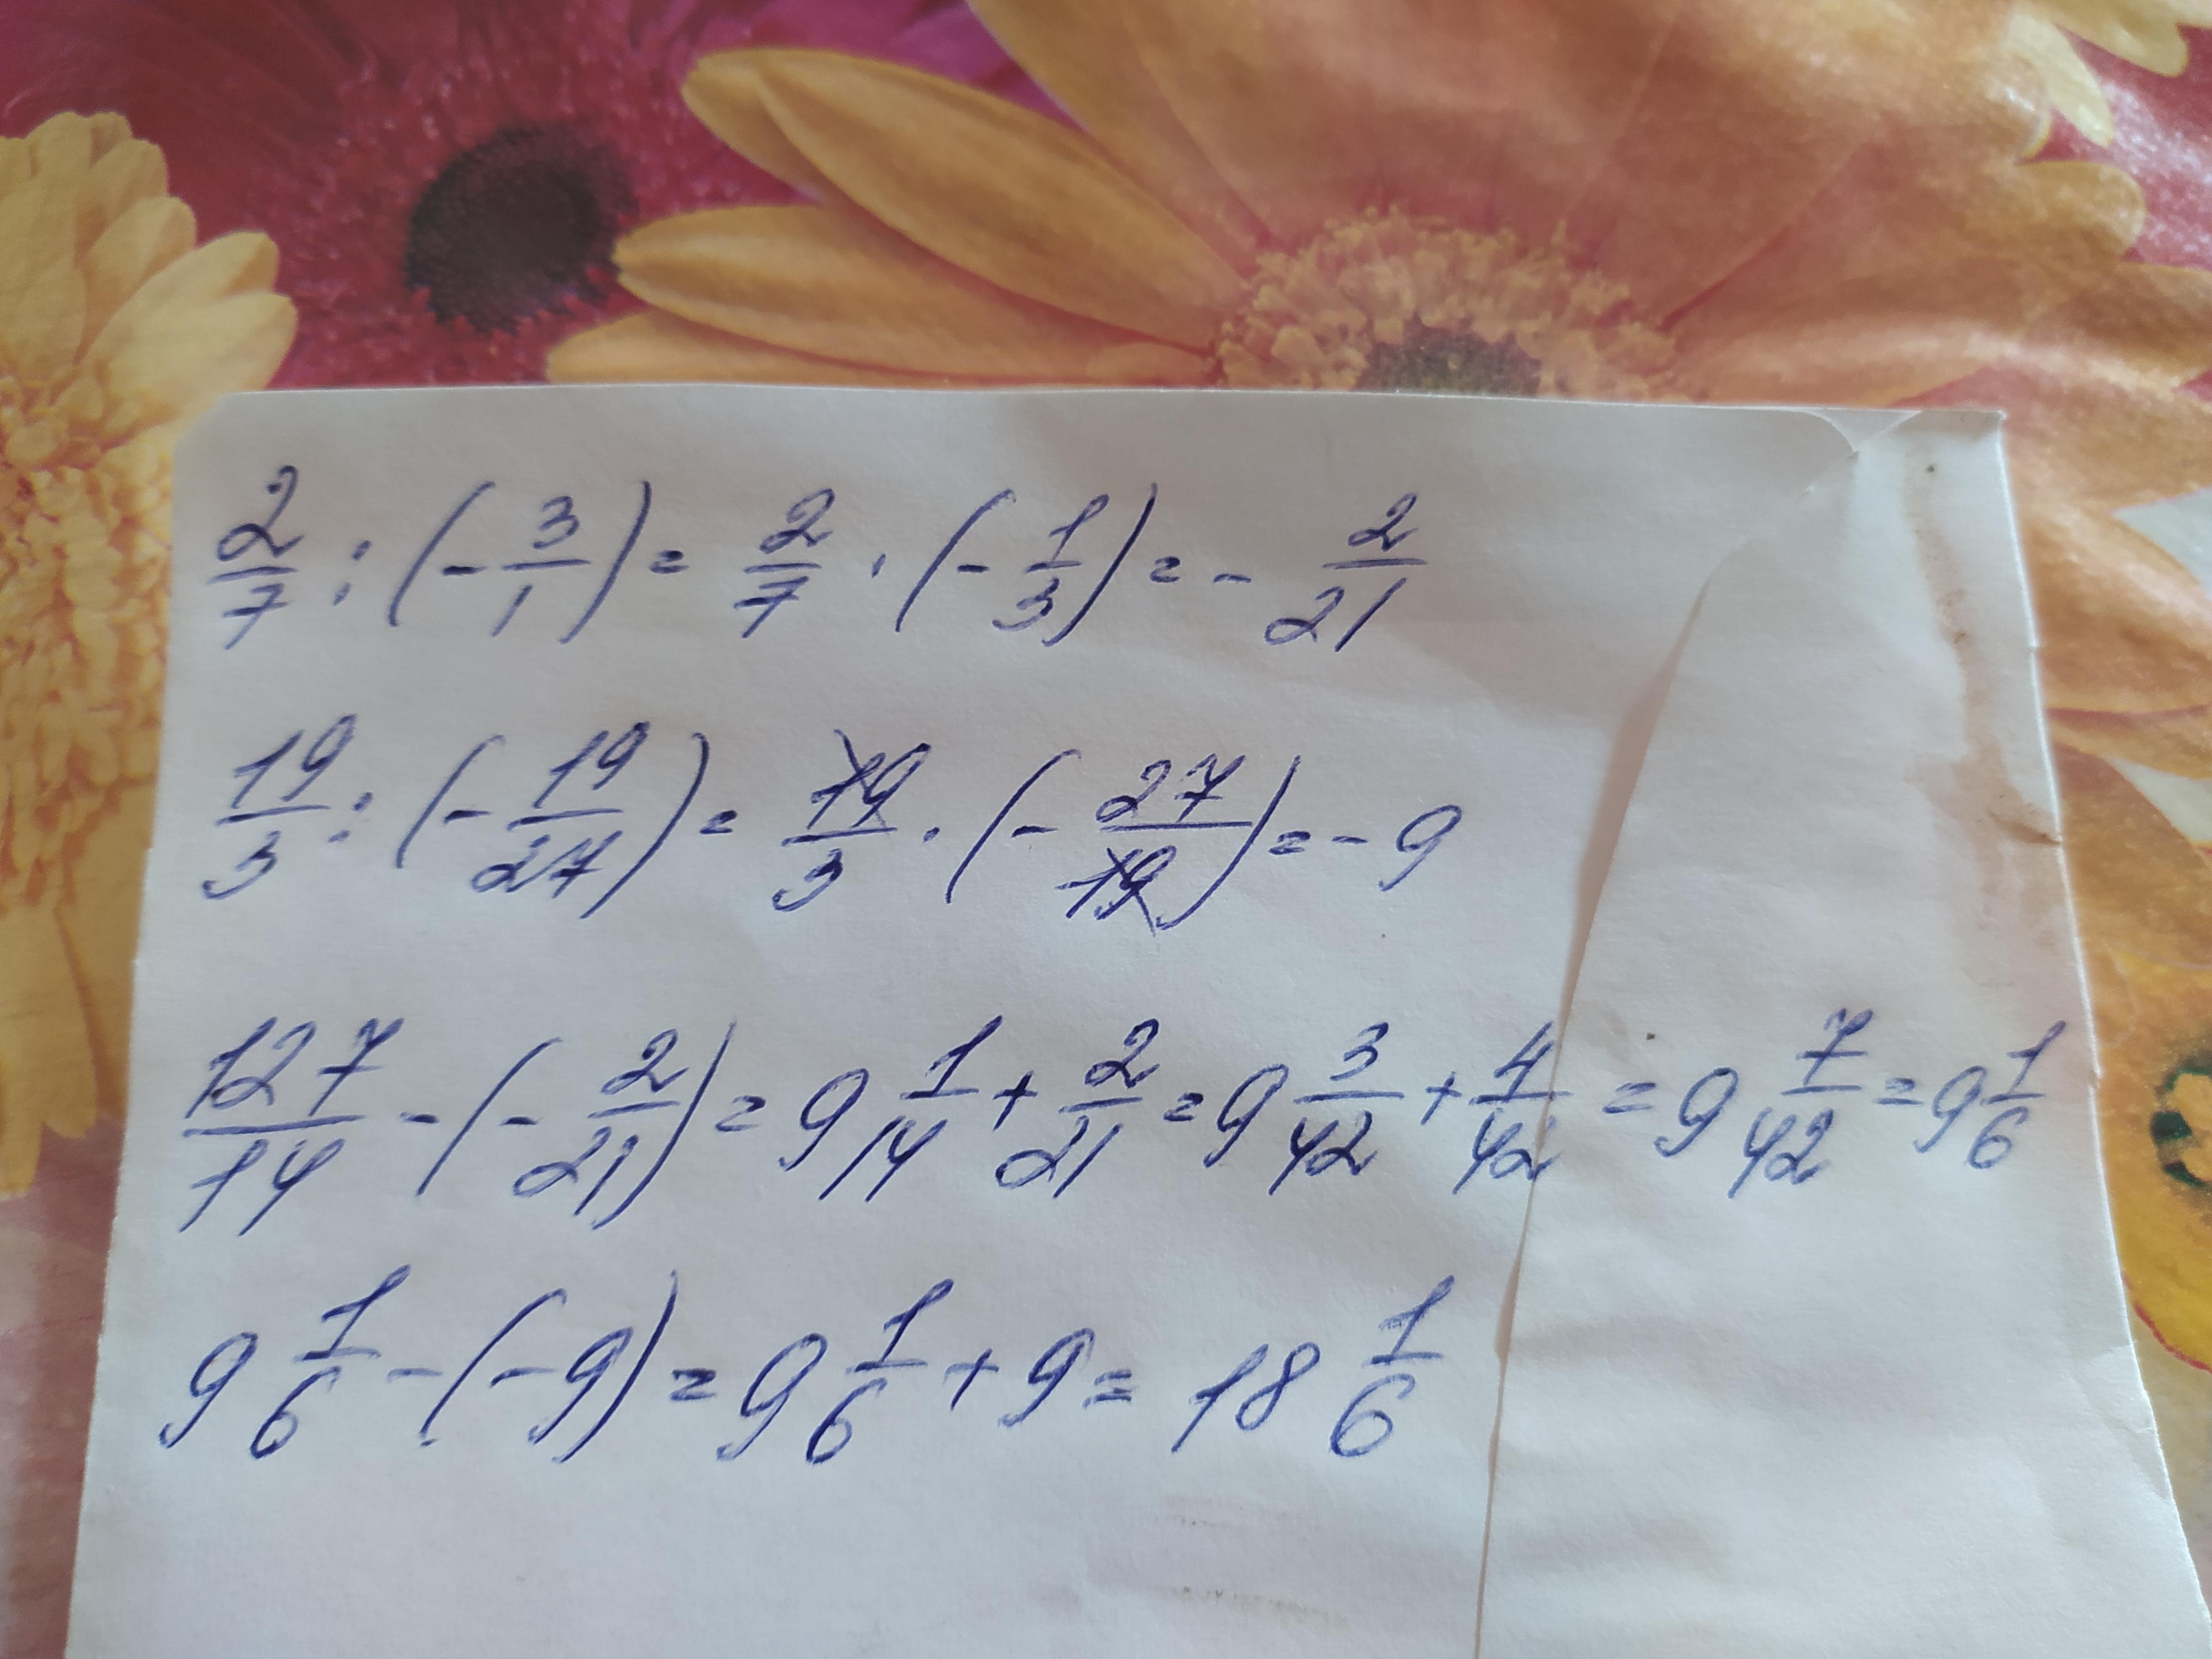 2/7 : (- 3/1) = 2/7 · (- 1/3) = - 2/21
19/3 : (- 19/27) = 19/3 · (- 27/19) = - 9
127/14 - (- 2/21) = 9 1/14 + 2/21 = 9 3/42 + 4/42 = 9 7/42 = 9 1/6
9 1/6 - (- 9) = 9 1/6 + 9 = 18 1/6